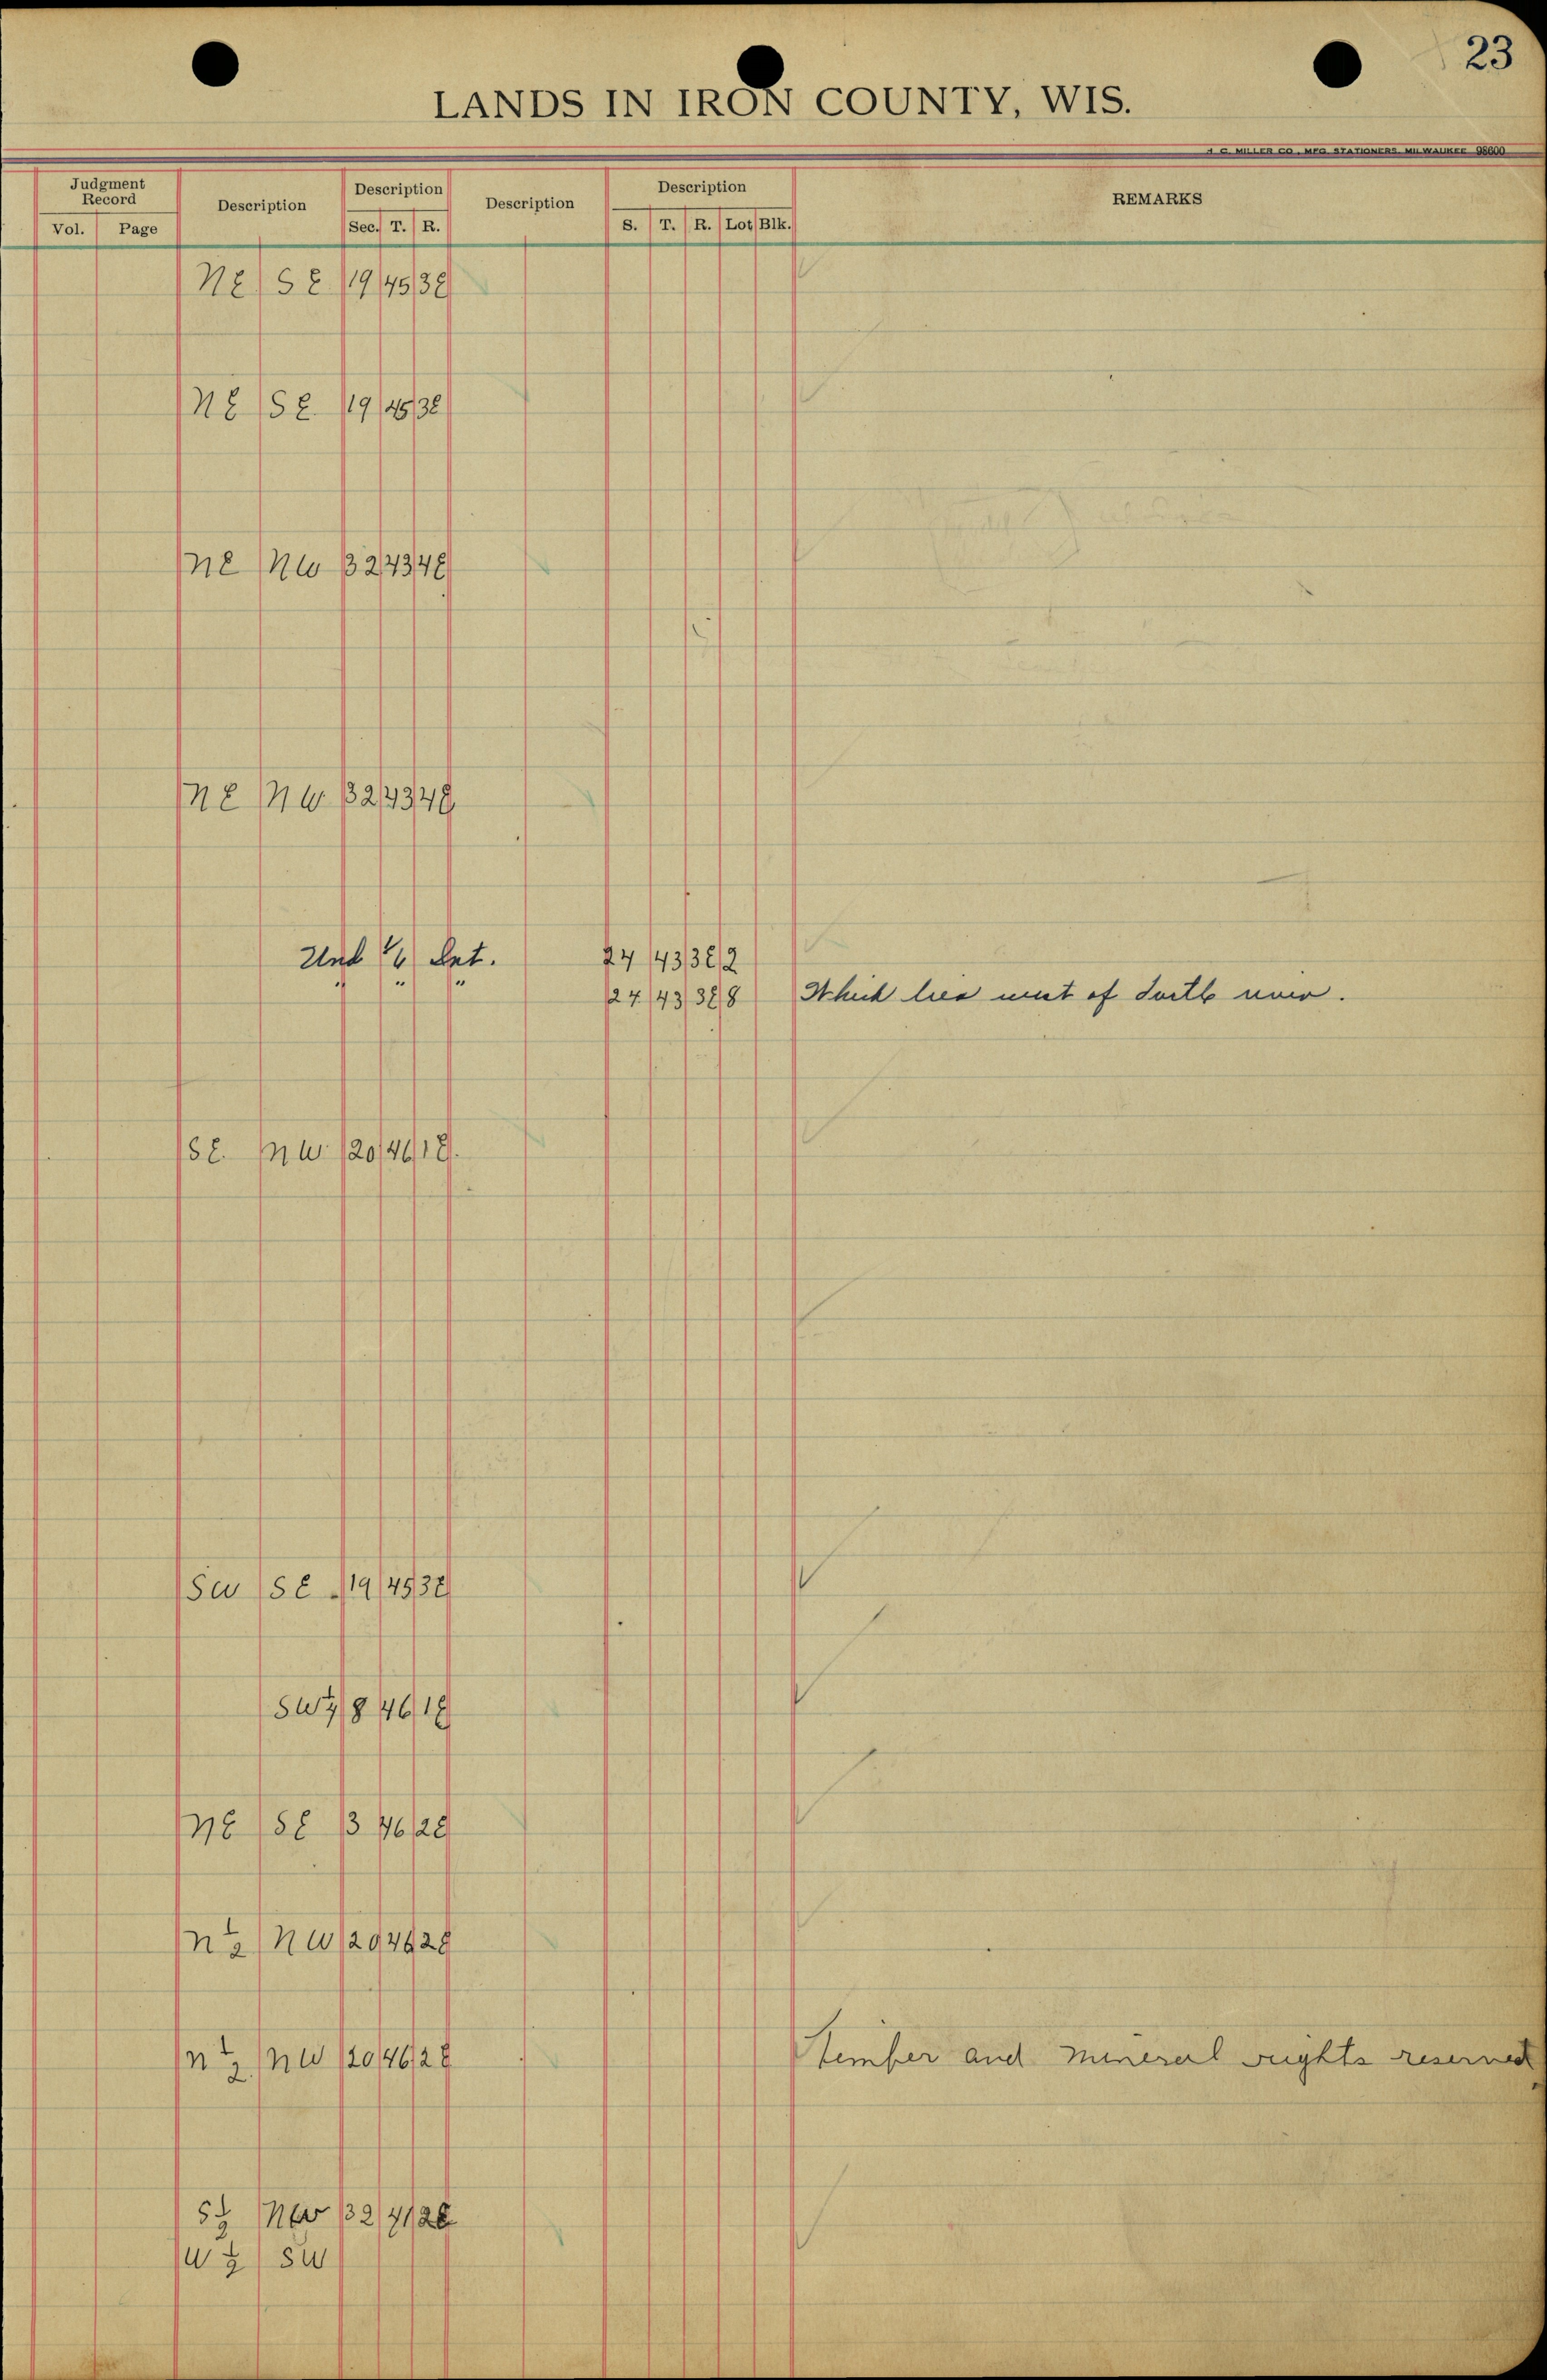 23
LANDS IN IRON COUNTY, WIS.
H. C. MILLER CO., MFG. STATIONERS, MILWAUKEE 98600
Judgment Record Description Description Description Description REMARKS
Vol. Page Sec. T. R. S. T. R. Lot Blk.
NE SE 19 45 3E
NE SE 19 45 3E
NE NW 32 43 4E
NE NW 32 43 4E
Und 1/6 Int. 24 43 3E 2
" " " 24 43 3E 8 Which lies west of river.
SE NW 20 46 1E
SW SE 19 45 3E
SW 1/4 8 46 1E
NE SE 3 46 2E
N 1/2 NW 20 46 2E
N 1/2 NW 20 46 2E Timber and mineral rights reserved
S 1/2 NW 32 41 2E
W 1/2 SW